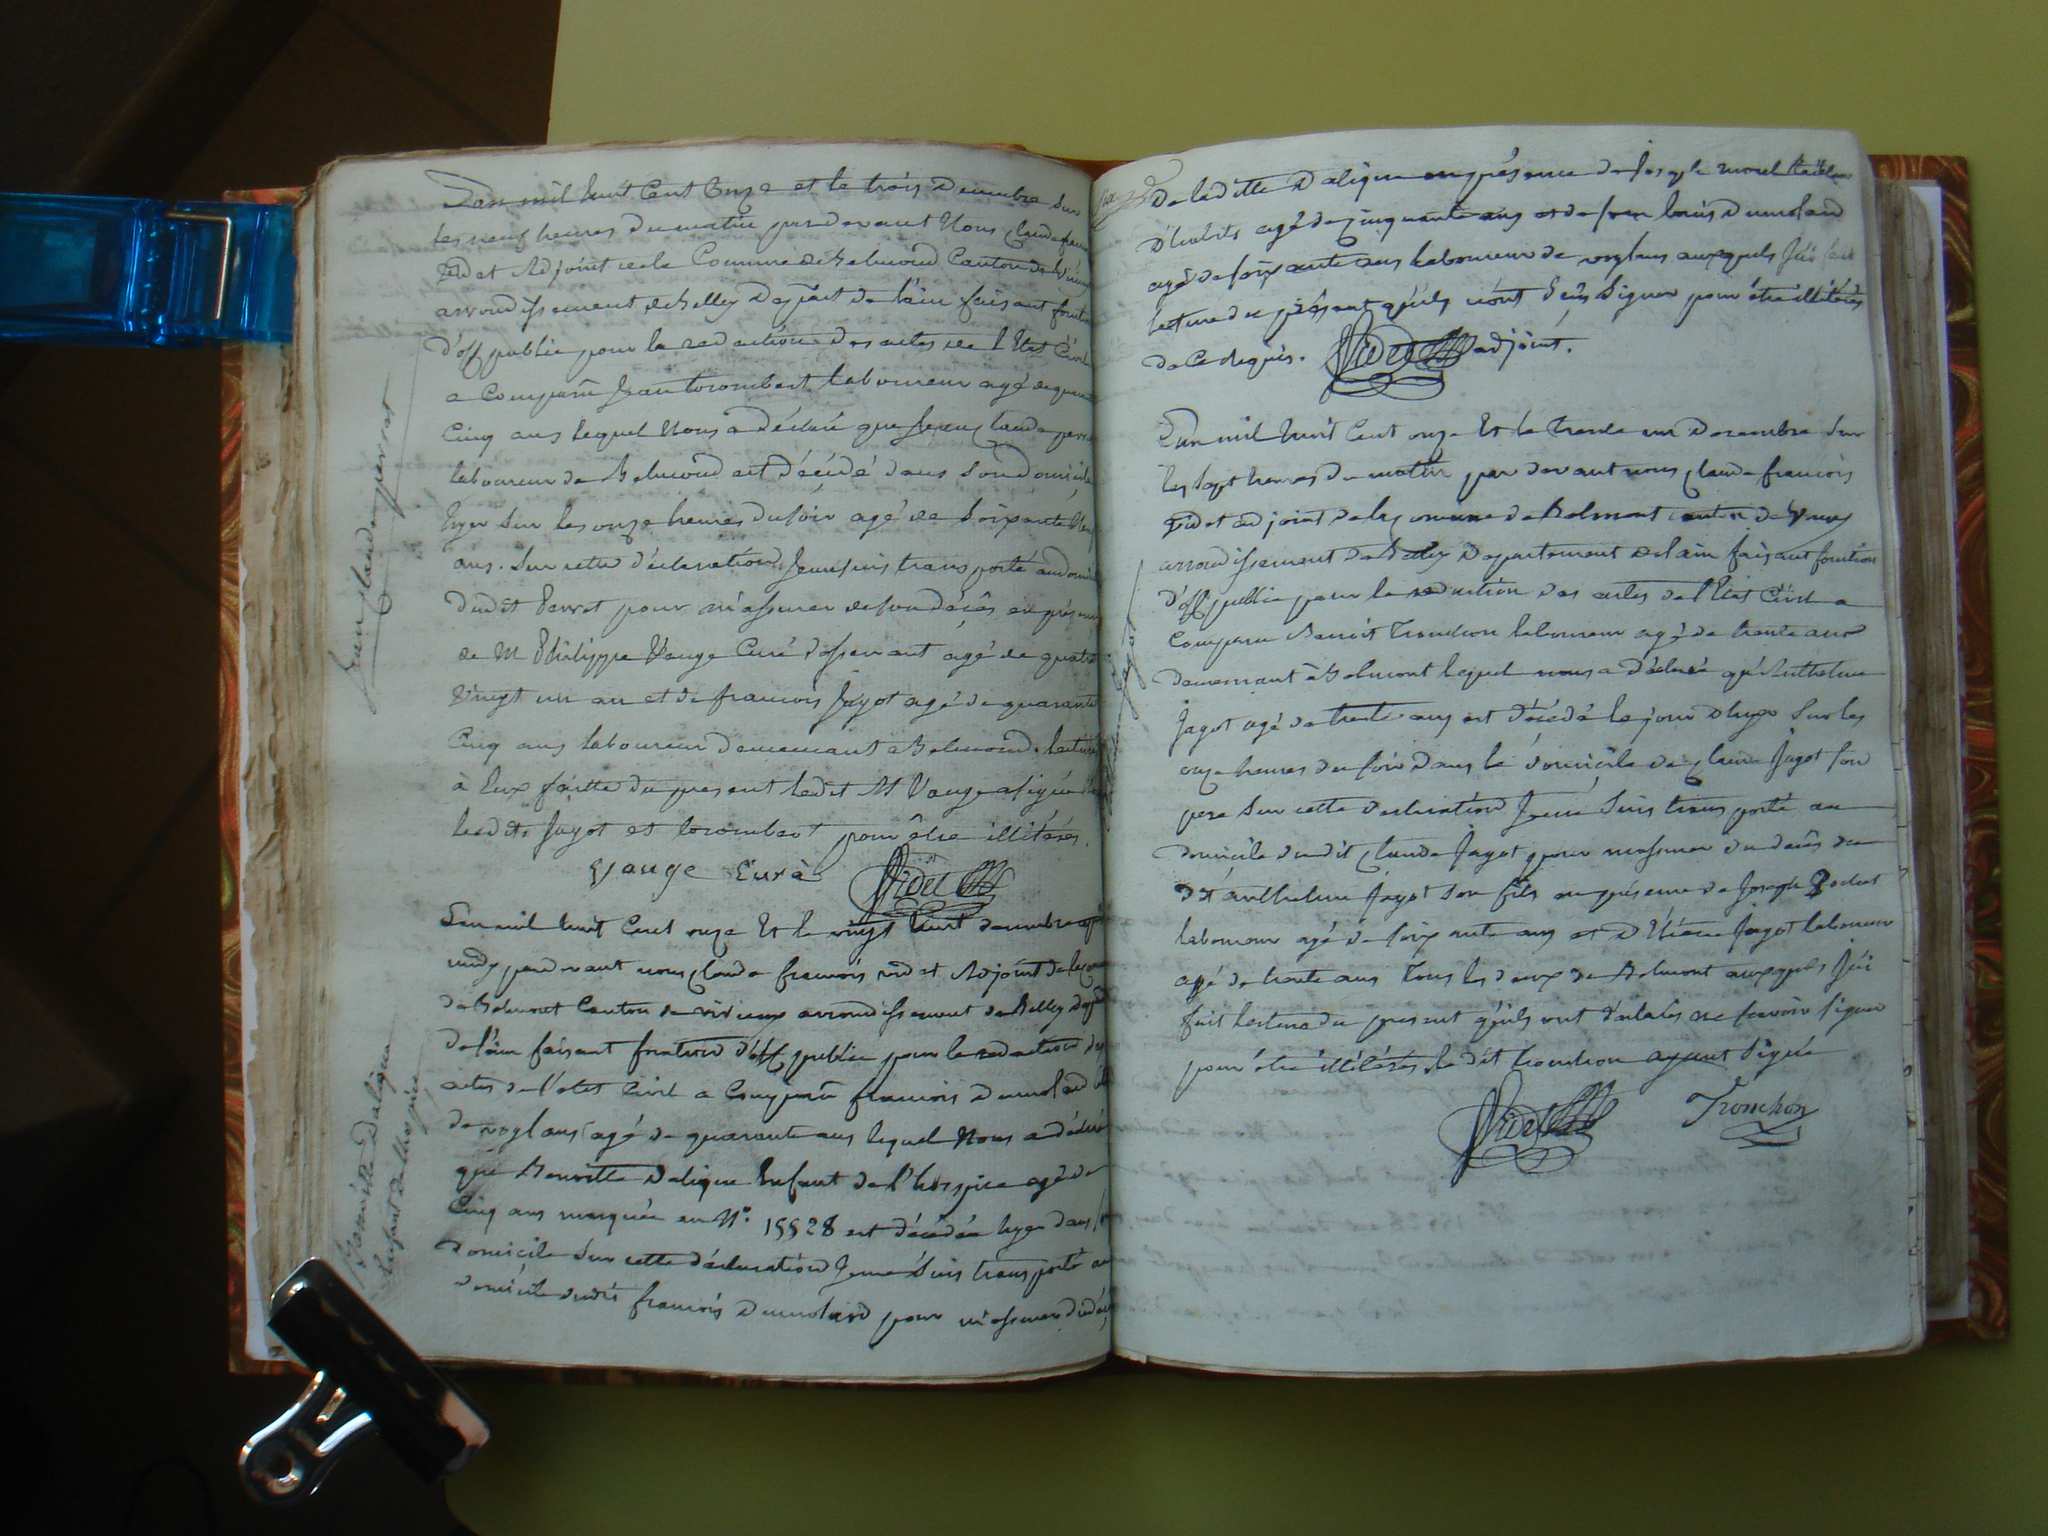 L'an mil huit Cent Onze et le trois Decembre Sur
les neuf heures du matin par devant Nous Claude fran
Videt Adjoint de la Commune de Belmond Canton de
arrondissement de Belley Depart de l'ain faisant
d'off publie pour la redaction des actes de l'Etat Civil
a Comparu Jean Corombert laboureur agé de
Cinq ans lequel Nous a déclaré que Jean Claude perra
laboureur de Belmond est décédé dans Son domicile
hyer Sur les onze heures du soir agé de Soixante
ans. Sur cette déclaration Je me suis transporté au domi
dudit Perrat pour m'assurer de son décès en présen
de M Philippe Vauge Curé dessservant agé de quatre
Vingt un an et de francois Jagot agé de quarante
Cinq ans laboureur demeurant a Belmond. lecture
à Eux faitte du present ledit M Vauge a signé
lesdits Jagot et Corombert pour être illitérés.
Vauge Curé Videt
Jean Claude perrat
L'an mil huit Cent onze Et le vingt huit decembre
midy par devant nous Claude francois videt Adjoint de la
de Belmont Canton de virieux arrondissement de Belley
de l'ain faisant fonction d'off publie pour la redaction des
actes de l'etat Civil a Comparu francois Dumolard
de voglans agé de quarante ans lequel Nous a déclaré
que Benoitte Daligue Enfant de l'hospice agé de
Cinq ans marquée au N°. 15528 est décédée hyer dans
domicile Sur cette déclaration Je me Suis transporté au
domicile dudit francois Dumolard pour m'assurer du déc
Benoitte Daligue
Enfant de l'hospice
De laditte Daligue en présence de Joseph morel
D'habits agé de Cinquante ans et de louis Dumolard
agé de soixante ans laboureur de voglans auxquels J'ai fait
lecture du présent qu'ils n'ont Seus Signer pour être illitérés
de Ce requis. Videt adjoint.
L'an mil huit Cent onze Et le Trente un Decembre Sur
les Sept heures du matin par devant nous Claude francois
Videt adjoint de la Commune de Belmont canton de
arrondissement de Belley Departement de l'ain faisant fonction
d'off publie pour la redaction des actes de l'Etat Civil a
Comparu Benoit Tronchon laboureur agé de trente ans
demeurant a Belmont lequel nous a déclaré qu'Anthelme
Jagot agé de trente ans est décédé le jour D'hyer Sur les
onze heures du soir Dans le domicile de Claude Jagot son
pere Sur cette declaration Je me Suis transporté au
domicile dudit Claude Jagot pour m'assurer du décès de
dit anthelme Jagot son fils en présence de Joseph
laboureur agé de soixante ans et D'Etiene Jagot laboureur
agé de trente ans Tous les deux de Belmont auxquels J'ai
fait lecture du present qu'ils ont déclarés ne scavoir signer
pour être illitérés, le dit tronchon ayant Signé
Videt Tronchon